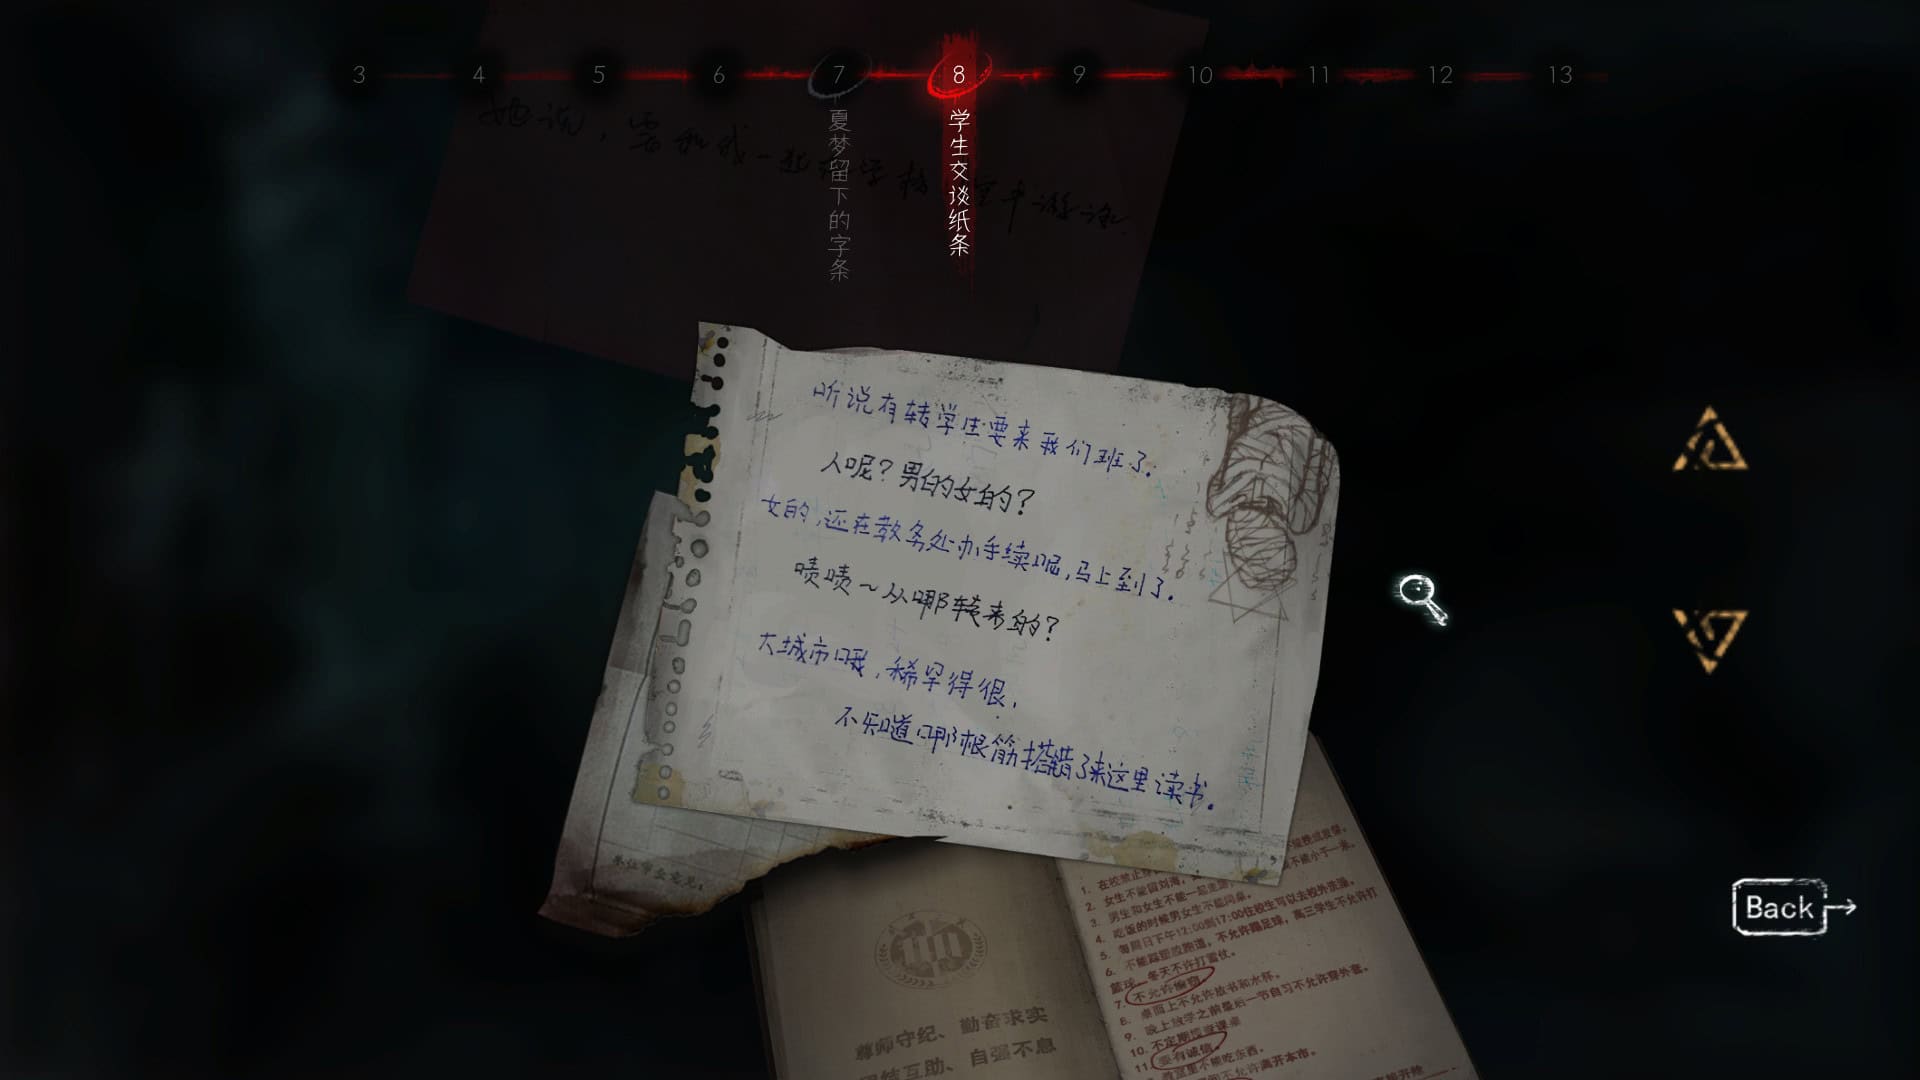 3 4 5 6 7 8 9 10 11 12 13
夏梦留下的字条
学生交谈纸条
她说，要和我一起
听说有转学生要来我们班了.
人呢？男的女的？
女的，还在教务处办手续呢，马上到了.
啧啧～从哪转来的？
大城市哦，稀罕得很，
不知道哪根筋搭错了来这里读书.
Back
1. 在校禁止
2. 女生不能留刘海，
3. 男生和女生不能一起走
4. 吃饭的时候男女生不能同桌。
5. 每周日下午12:00到17:00住校生可以去校外洗澡。
6. 不能踩塑胶跑道，不允许踢足球，高三学生不允许打
篮球，冬天不许打雪仗。
7. 不允许
8. 桌面上不允许放书和水杯。
9. 晚上放学之前最后一节自习不允许穿外套。
10. 不定期
11. 要有诚信。
能吃东西。
不允许离开本市。
尊师守纪、勤奋求实
团结互助、自强不息